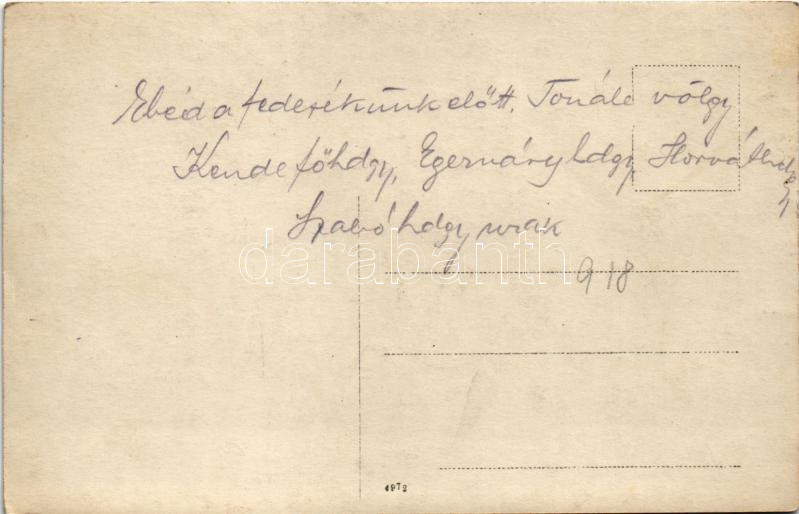 Ebéd a fedezékünk előtt. Tonále völgy
Kende főhdgy, Egerváry hdgy, Horváth hdgy
Szabó hdgy urak
darabanth
918
4972